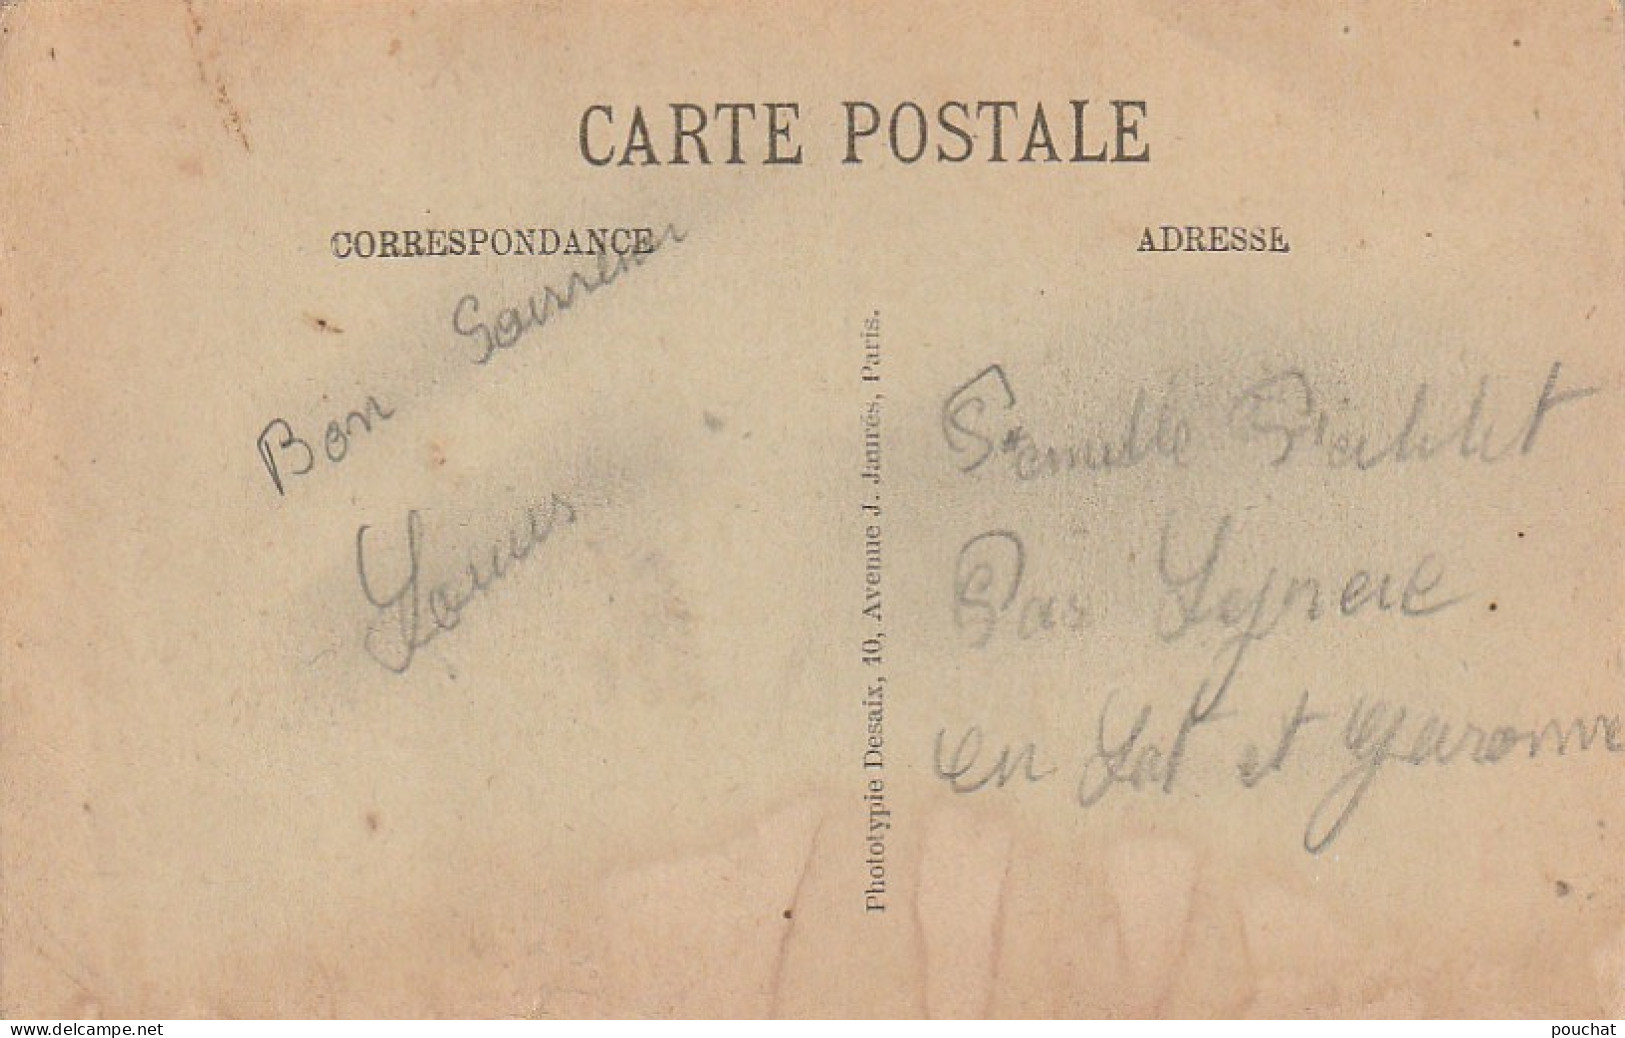 CARTE POSTALE
CORRESPONDANCE
ADRESSE
Bon Souvenir
Louis
Famille
Par
en Lot et Garonne
Phototypie Desaix, 10, Avenue J. Jaurés, Paris.
delcampe.net
pouchat